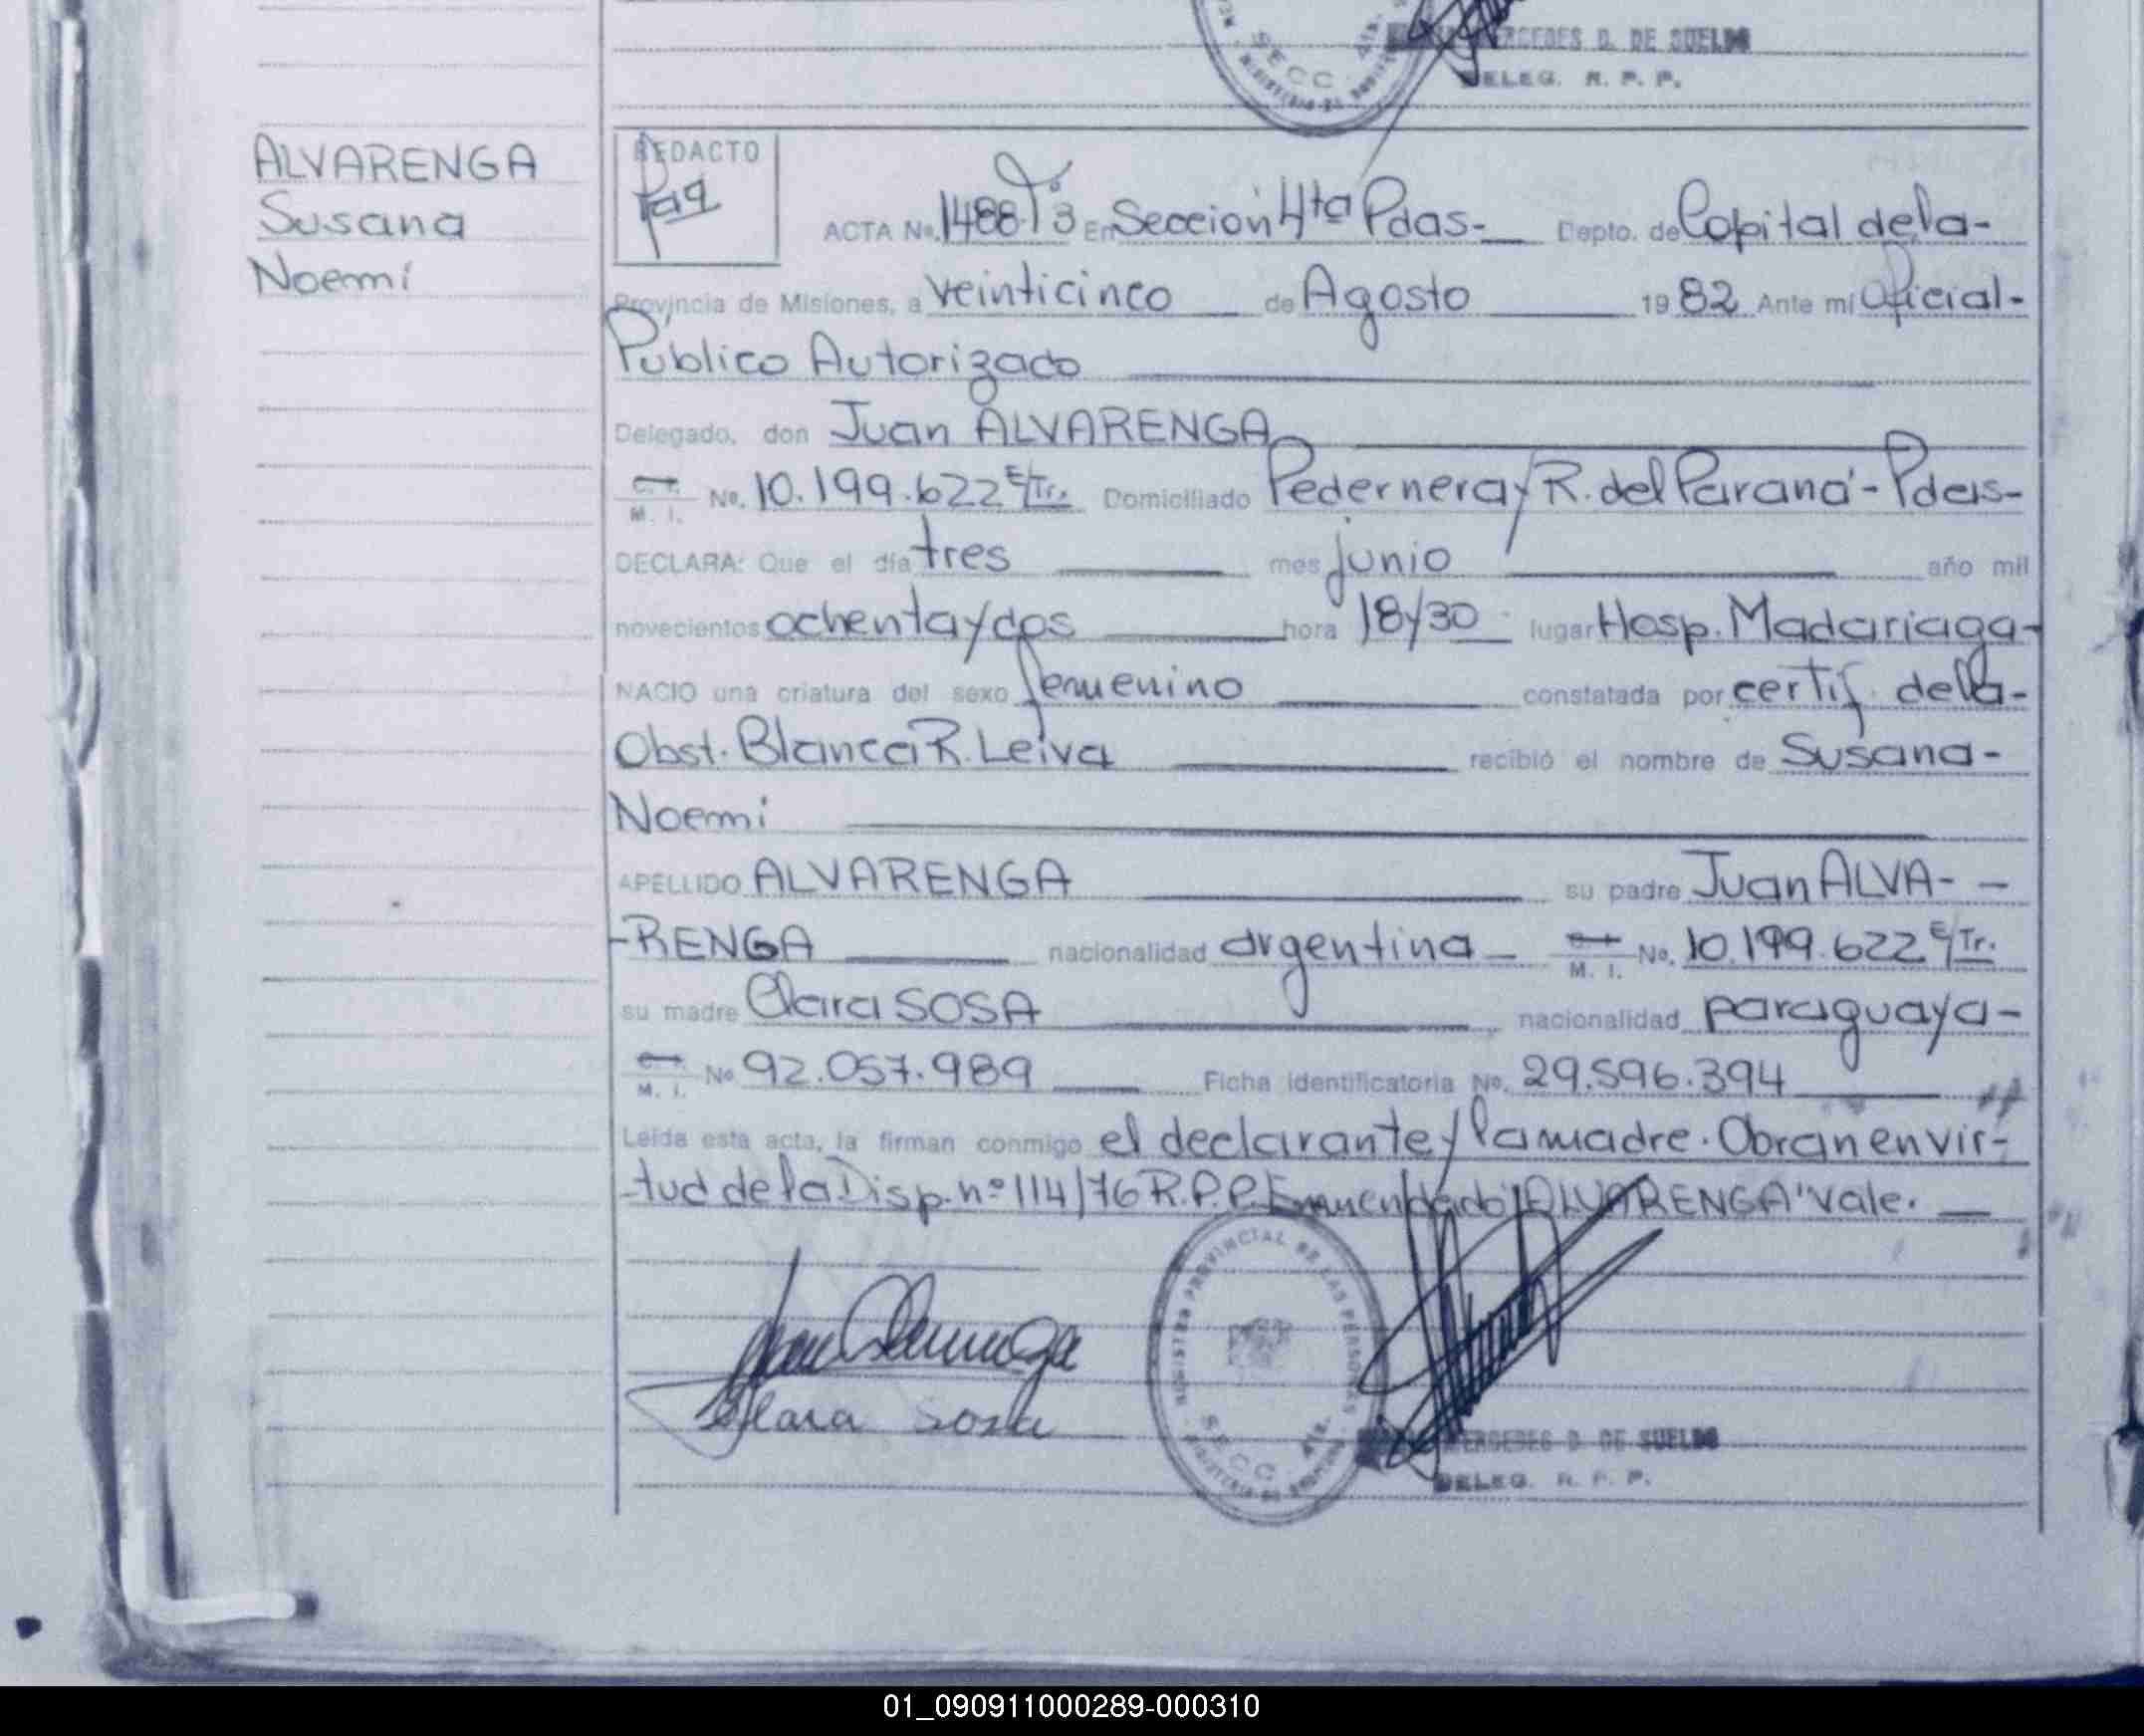 MERCEDES D. DE SUELDO
DELEG. R. P. P.
SECC. 4ta.
ALVARENGA
Susana
Noemí
REDACTO
ACTA No. 1488 Tº 3 En Sección 4ta Pdas- Depto. de Capital de la-
Provincia de Misiones, a veinticinco de Agosto 1982 Ante mí Oficial-
Público Autorizado
Delegado, don Juan ALVARENGA
C. I. M. I. No. 10.199.622 E/Tr. Domiciliado Pedernera y R. del Paraná - Pdas-
DECLARA: Que el día tres mes junio año mil
novecientos ochenta y dos hora 18y30 lugar Hosp. Madariaga-
NACIO una criatura del sexo femenino constatada por certif. de la-
Obst. Blanca R. Leiva recibió el nombre de Susana-
Noemi
APELLIDO ALVARENGA su padre Juan ALVA- -
-RENGA nacionalidad argentina - M. I. No. 10.199.622 E/Tr.
su madre Clara SOSA nacionalidad paraguaya-
M. I. No 92.057.989 Ficha identificatoria No. 29.596.394
Leída esta acta, la firman conmigo el declarante y la madre. Obran en vir-
-tud de la Disp. nº 114/76 R.P.P. Enmendado "ALVARENGA" Vale.
REGISTRO PROVINCIAL DE LAS PERSONAS
SECC. 4ta.
Juan Alvarenga
Clara Sosa
MERCEDES D. DE SUELDO
DELEG. R. P. P.
01_090911000289-000310